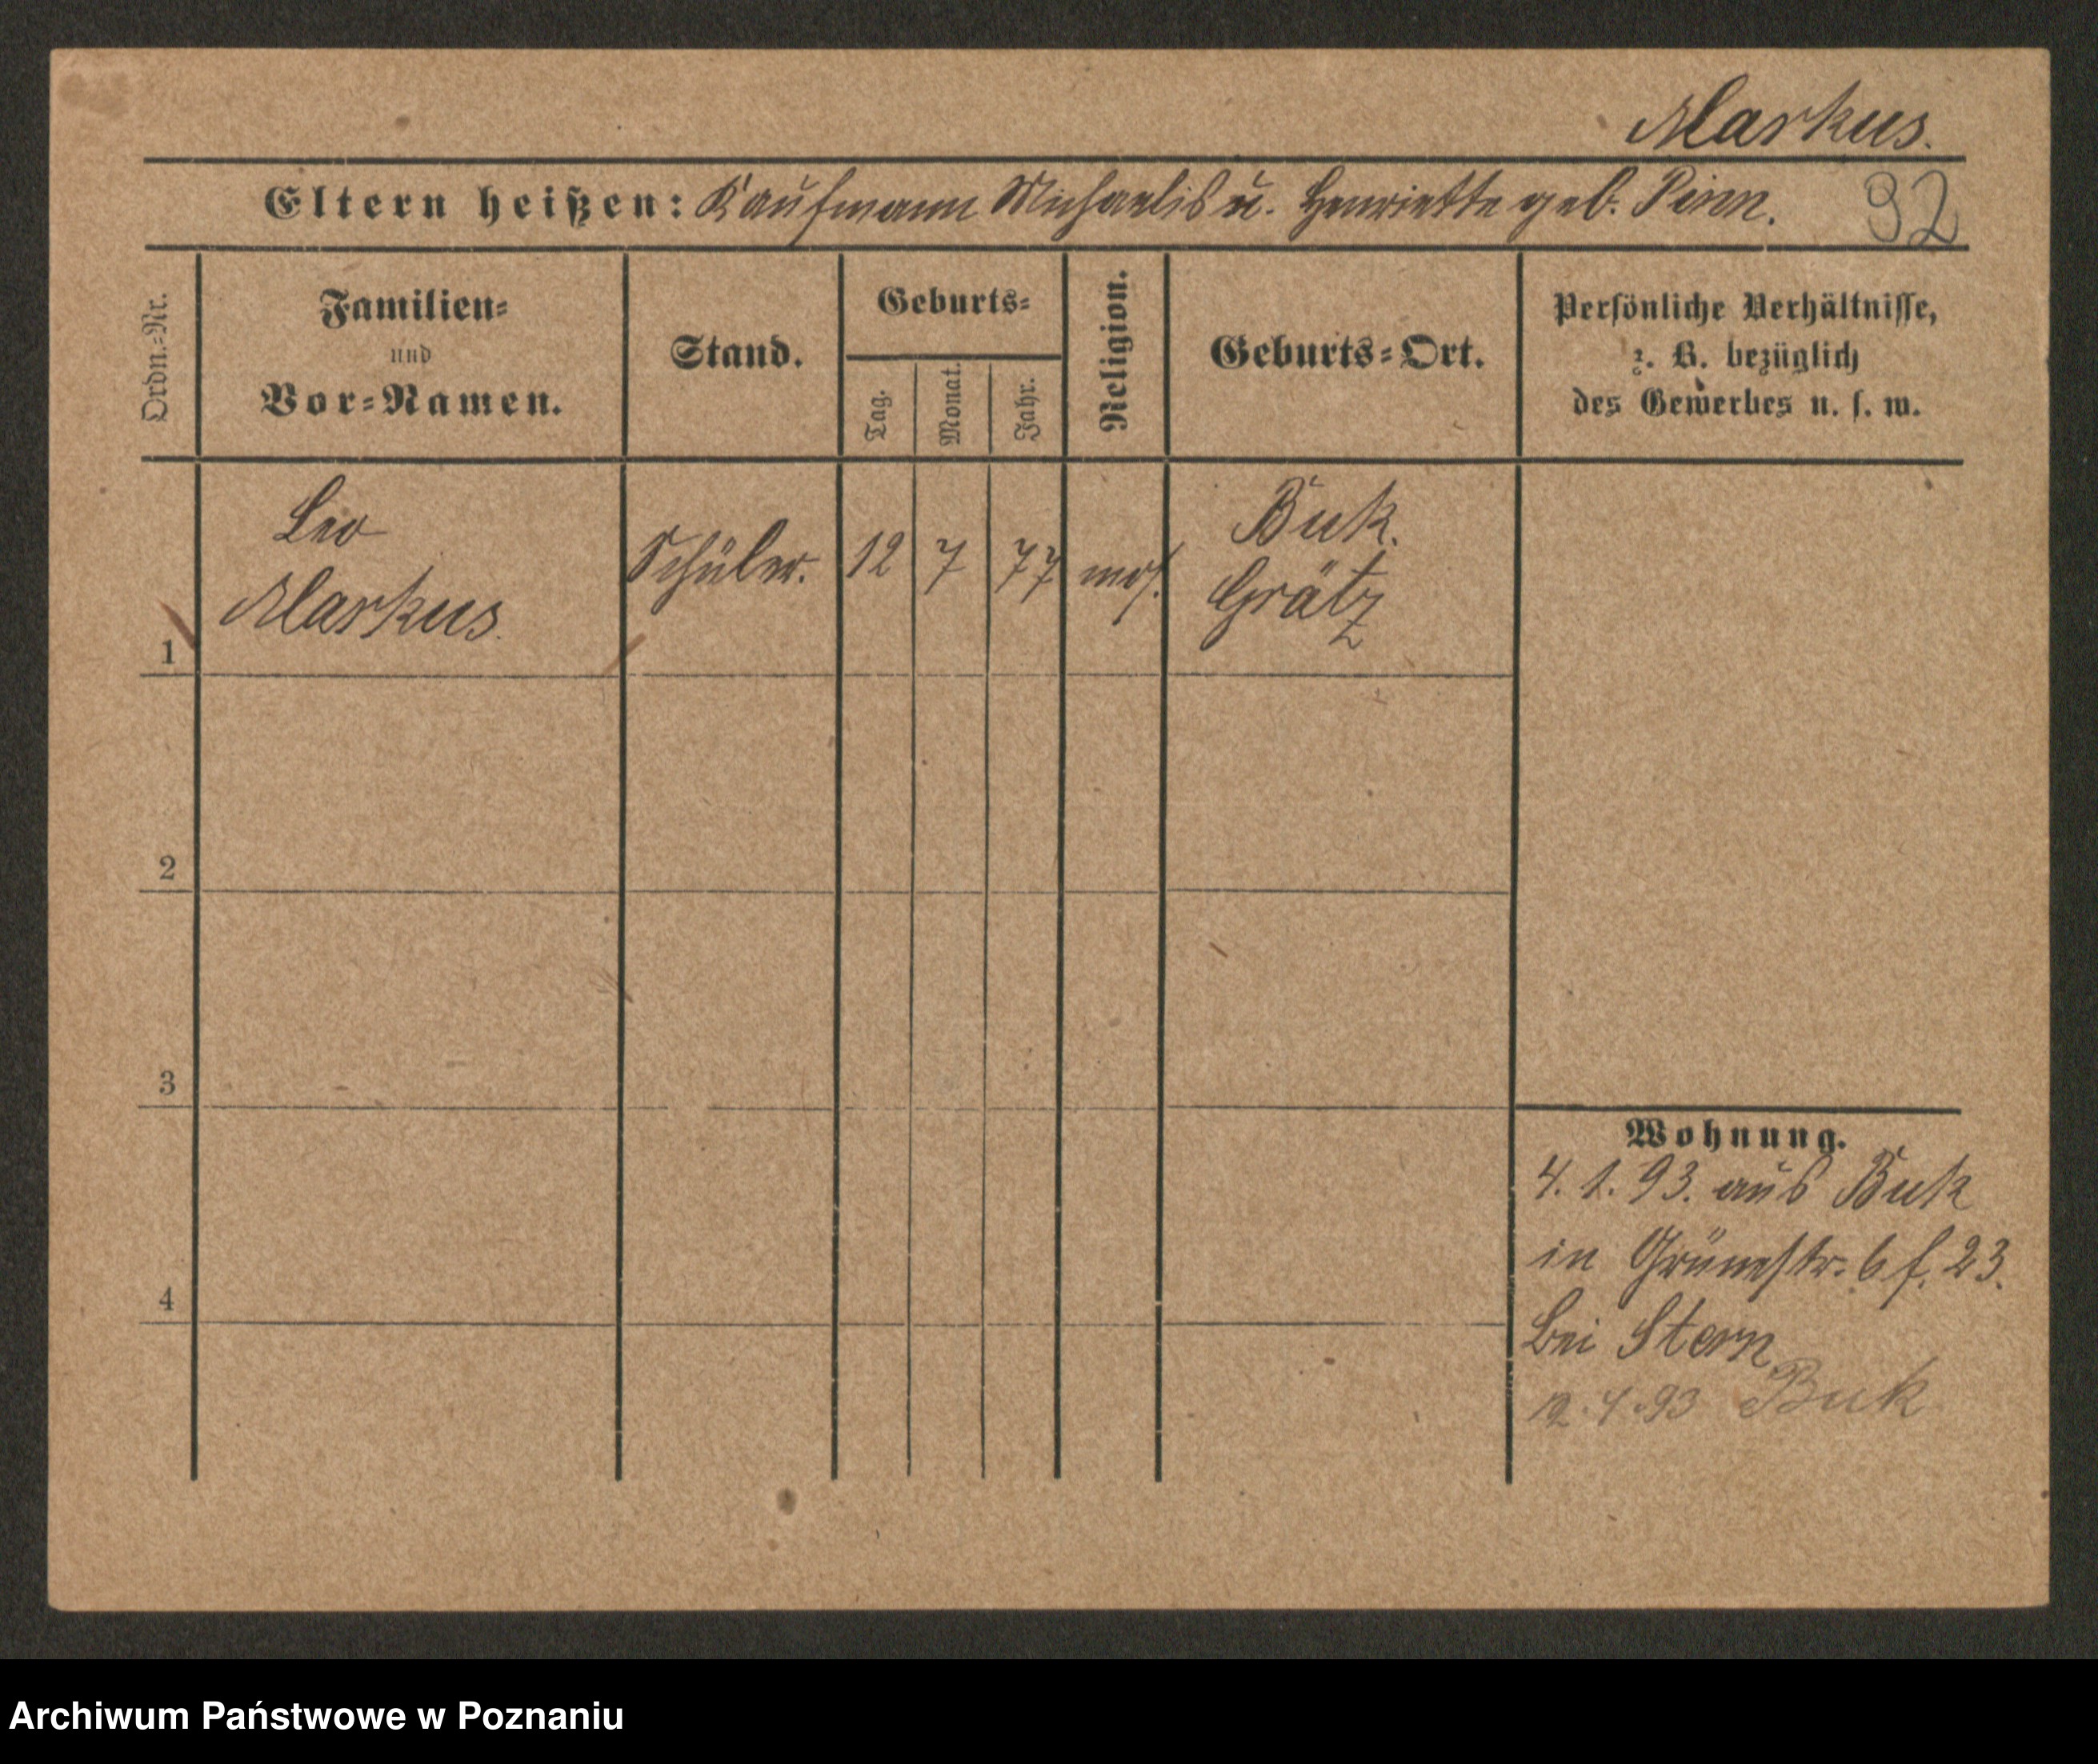 Markus.
Eltern heißen: Kaufmann Michaelis u. Henriette geb. Pinn. 92
Ordn.-Nr.
Familien- und Vor-Namen.
Stand.
Geburts-
Tag.
Monat.
Jahr.
Religion.
Geburts-Ort.
Persönliche Verhältnisse,
z. B. bezüglich
des Gewerbes u. s. w.
1
Leo
Markus.
Schüler.
12
7
77
mos.
Buk.
Grätz
2
3
4
Wohnung.
4. 1. 93. aus Buk
in Grünestr. 6 f. 23.
bei Stern
12.4.93 Buk
Archiwum Państwowe w Poznaniu